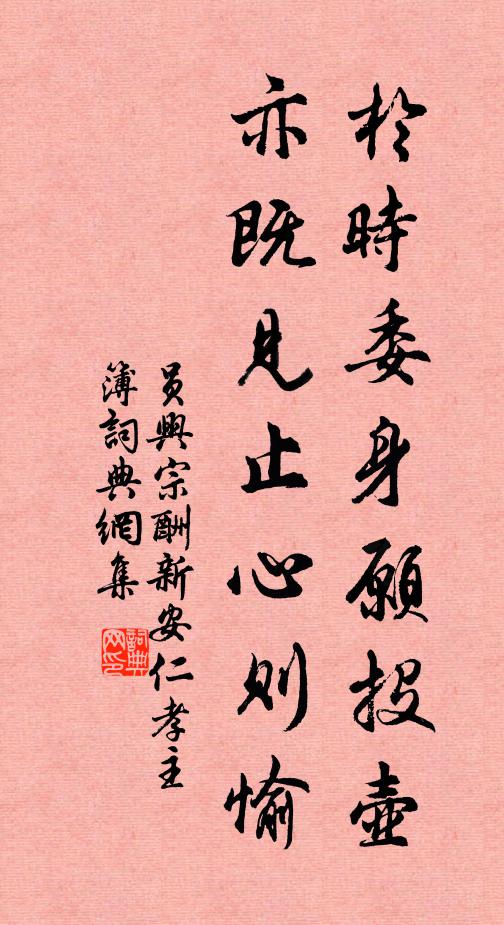 於時委身願投壺
亦既見止心則愉
員興宗酬新安仁孝主
簿詞典網集
詞典
网印